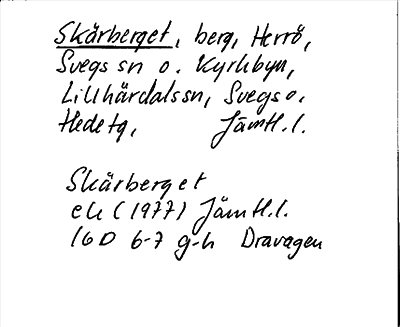 Skärberget, berg, Herrö,
Svegs sn o. Kyrkbyn,
Lillhärdals sn, Svegs o.
Hede tg, Jämtl. l.
Skärberget
ek (1977) Jämtl. l.
16D 6-7 g-h Dravagen